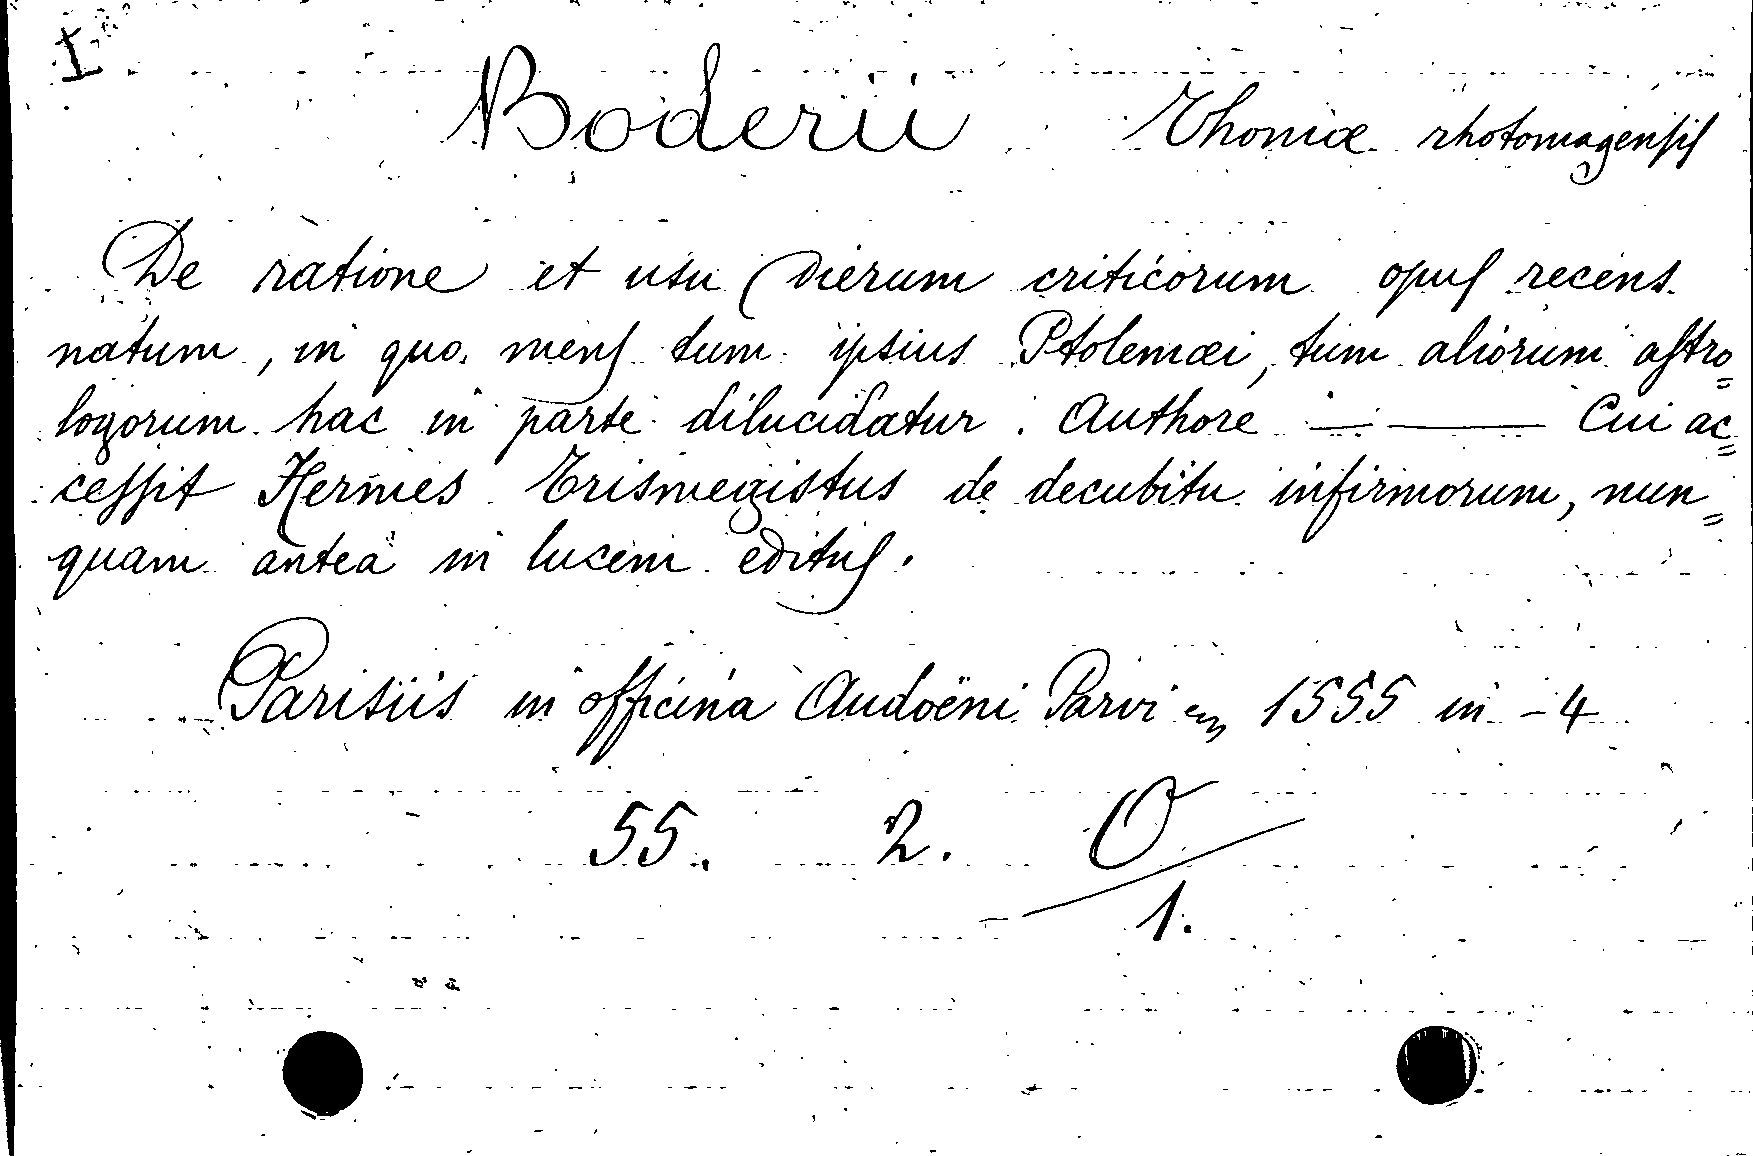 I
Boderii Thomæ rhotomagensis
De ratione et usu dierum criticorum opus recens
natum, in quo mens tum ipsius Ptolemæi, tum aliorum astro=
logorum hac in parte dilucidatur. Authore — — Cui ac=
cessit Hermes Trismegistus de decubitu infirmorum, nun=
quam antea in lucem editus.
Parisiis in officina Audoëni Parvi 1555 in -4
55. 2. O/1.